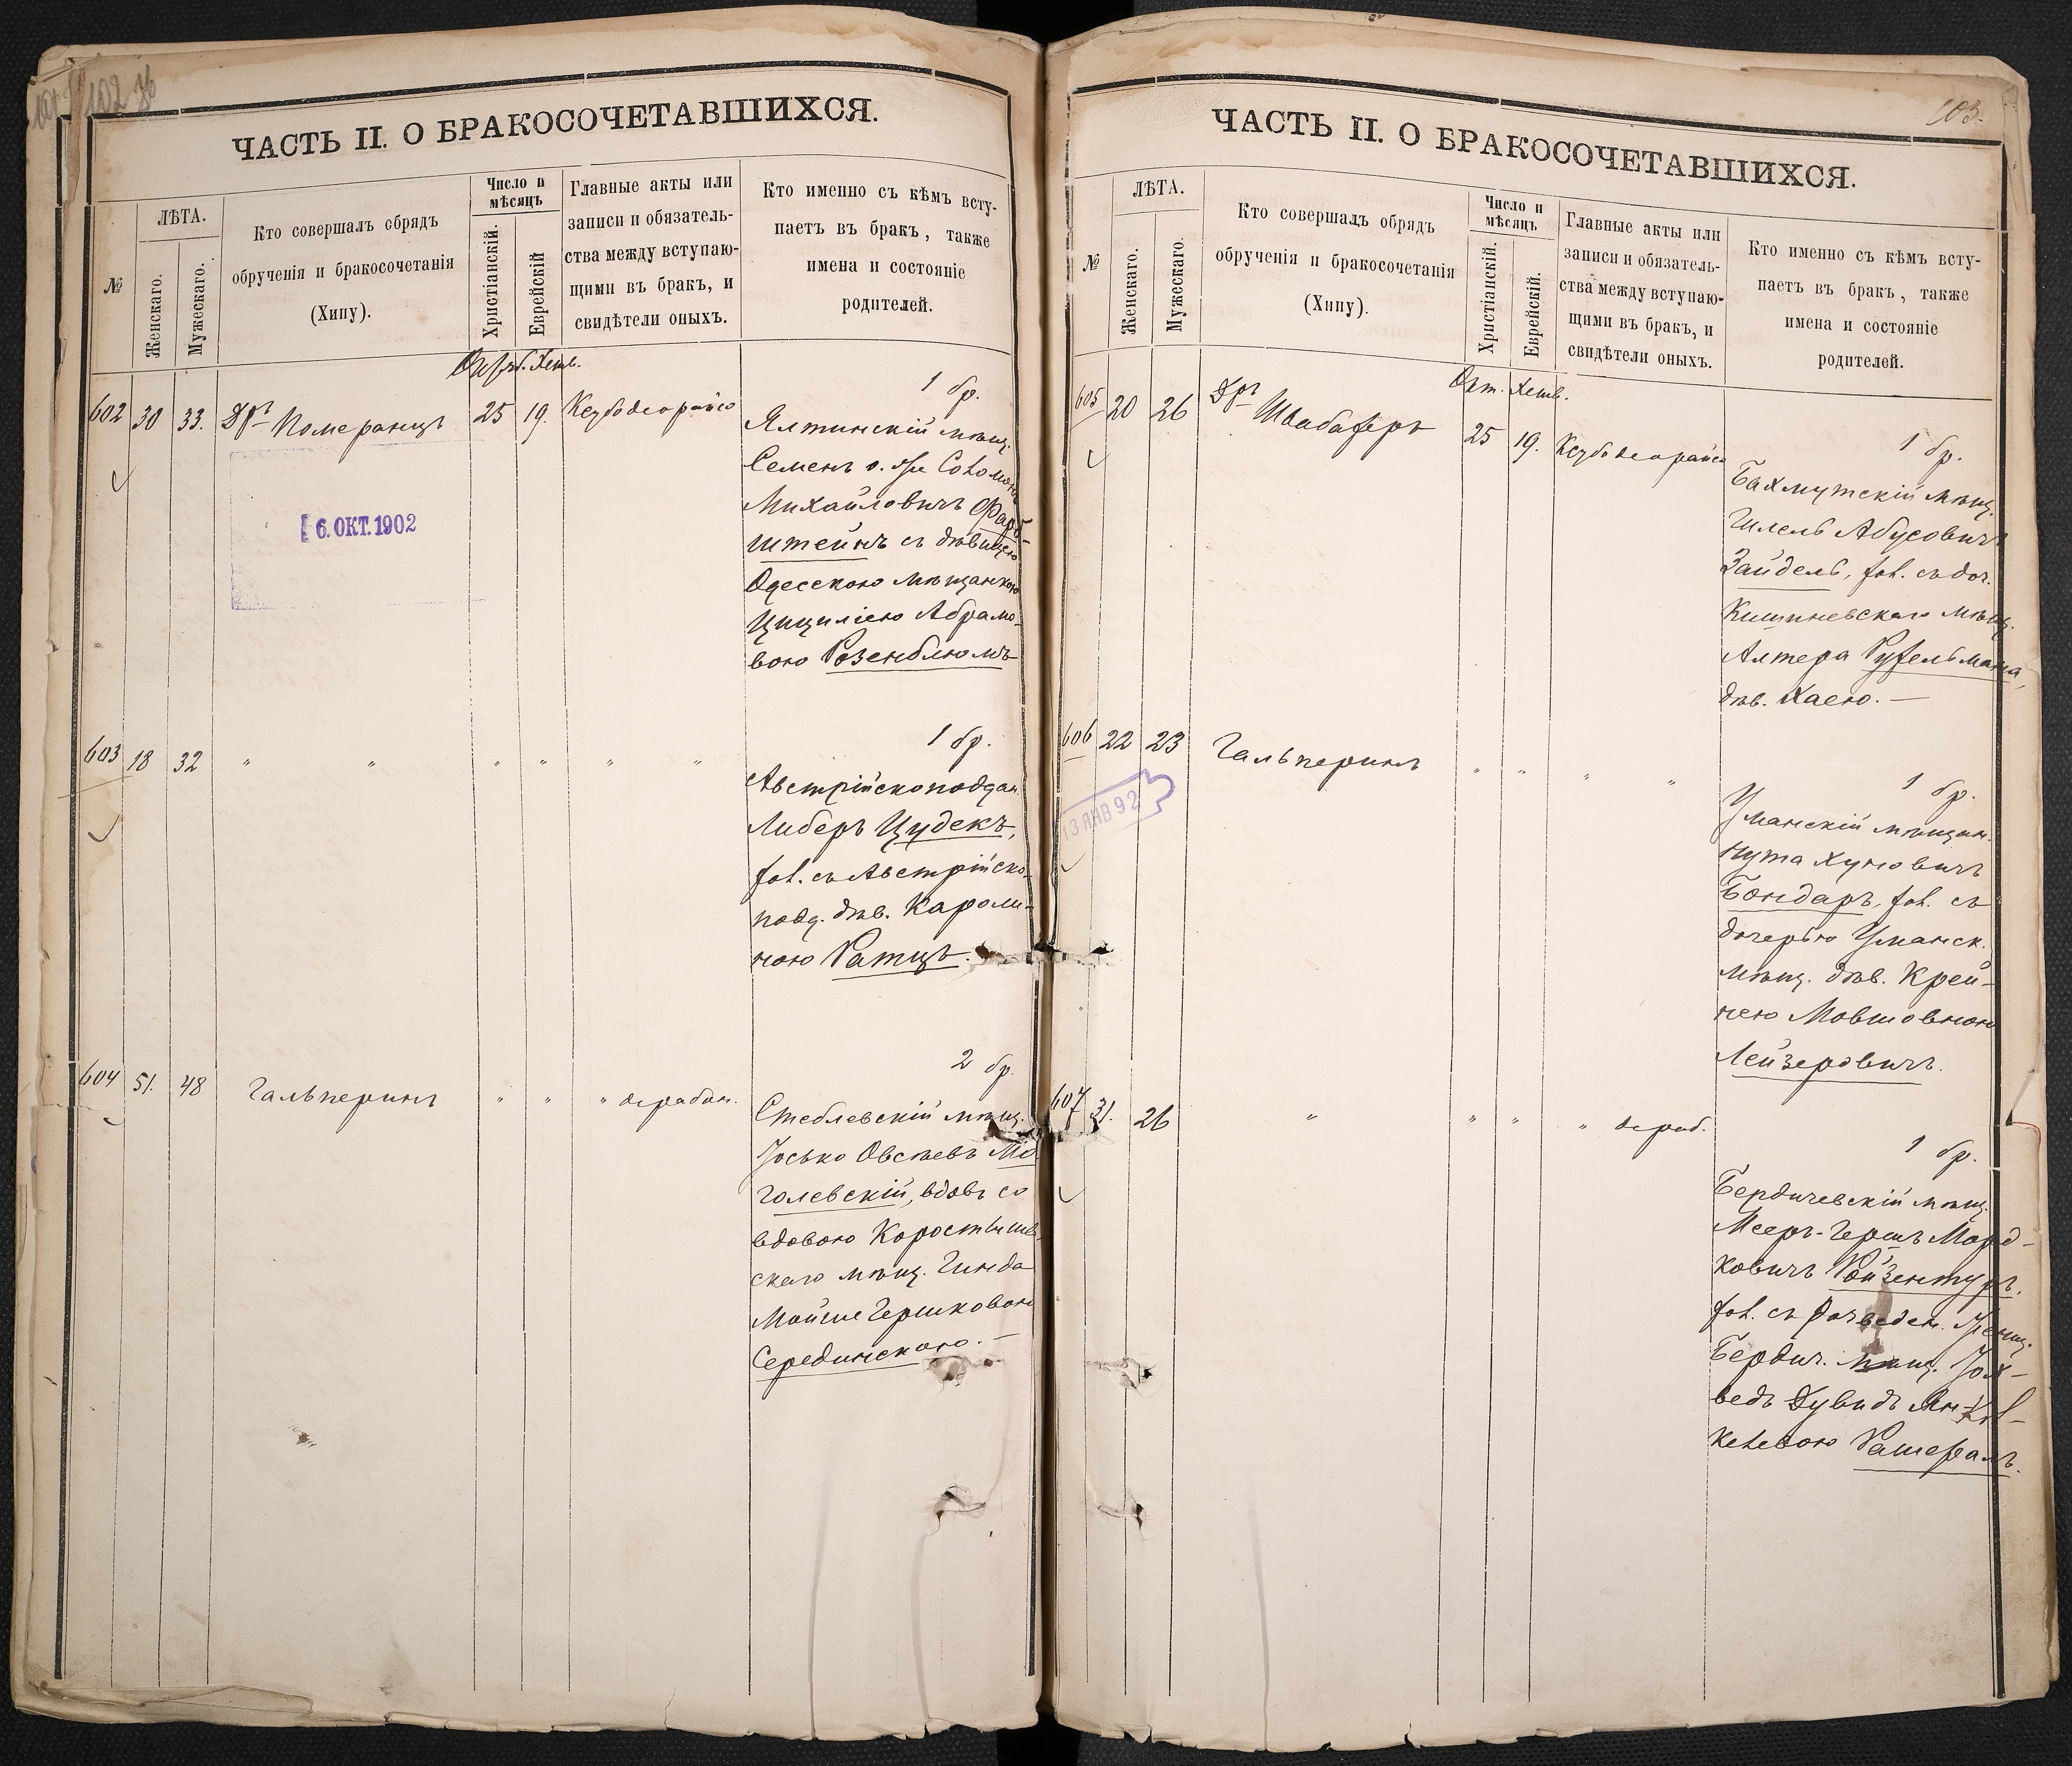 102 36
ЧАСТЬ II. О БРАКОСОЧЕТАВШИХСЯ.
№
ЛѢТА.
Женскаго.
Мужескаго.
Кто совершалъ обрядъ
обрученія и бракосочетанія
(Хипу).
Число и
мѣсяцъ
Христіанскій.
Еврейскій
Главные акты или
записи и обязатель-
ства между вступаю-
щими въ бракъ, и
свидѣтели оныхъ.
Кто именно съ кѣмъ всту-
паетъ въ бракъ, также
имена и состояніе
родителей.
602 30 33. Др Померанцъ 25 19.
6. ОКТ. 1902
1 бр.
Ялтинскій мѣщ.
Семенъ о. же Соломонъ
Михайловичъ Фарб-
штейнъ съ дѣвицею
Одесскою мѣщанкою
Цициліею Абрамо-
вою Розенблюмъ
603 18 32 " " " " " "
1 бр.
Австрійскоподдан.
Либеръ Цудекъ,
хол. съ Австрійско-
подд. дѣв. Кароли-
ною Ратцъ.
604 51. 48 Гальперинъ " " "
2 бр.
Стеблевскій мѣщ.
Іосько Овсѣевъ Мо
голевскій, вдов. со
вдовою Коростышев
скаго мѣщ. Гинда
Мойше Гершковою
Серединскою. —
103.
ЧАСТЬ II. О БРАКОСОЧЕТАВШИХСЯ.
№
ЛѢТА.
Женскаго.
Мужескаго.
Кто совершалъ обрядъ
обрученія и бракосочетанія
(Хипу).
Число и
мѣсяцъ
Христіанскій.
Еврейскій.
Главные акты или
записи и обязатель-
ства между вступаю-
щими въ бракъ, и
свидѣтели оныхъ.
Кто именно съ кѣмъ всту-
паетъ въ бракъ, также
имена и состояніе
родителей.
Окт. Хешв.
605 20 26 Др Швабахеръ 25 19.
1 бр.
Бахмутскій мѣщ.
Гилель Абусовичъ
Зайдель, хол. съ доч.
Кишиневскаго мѣщ.
Алтера Рухельмана,
дѣв. Хаею. —
606 22 23 Гальперинъ " " " "
13 ЯНВ 92
1 бр.
Уманскій мѣщан.
Нута Хуновичъ
Бондаръ, хол. съ
дочерью Уманск.
мѣщ. дѣв. Крей-
нею Мовшовною
Лейзеровичъ.
607 31. 26 " " " "
1 бр.
Бердичевскій мѣщ.
Мееръ-Гершъ Морд-
ковичъ Ройзентуръ.
хол. съ разведен.
Бердич. мѣщ. Іох-
ведъ Дувидъ Ян-
келевою